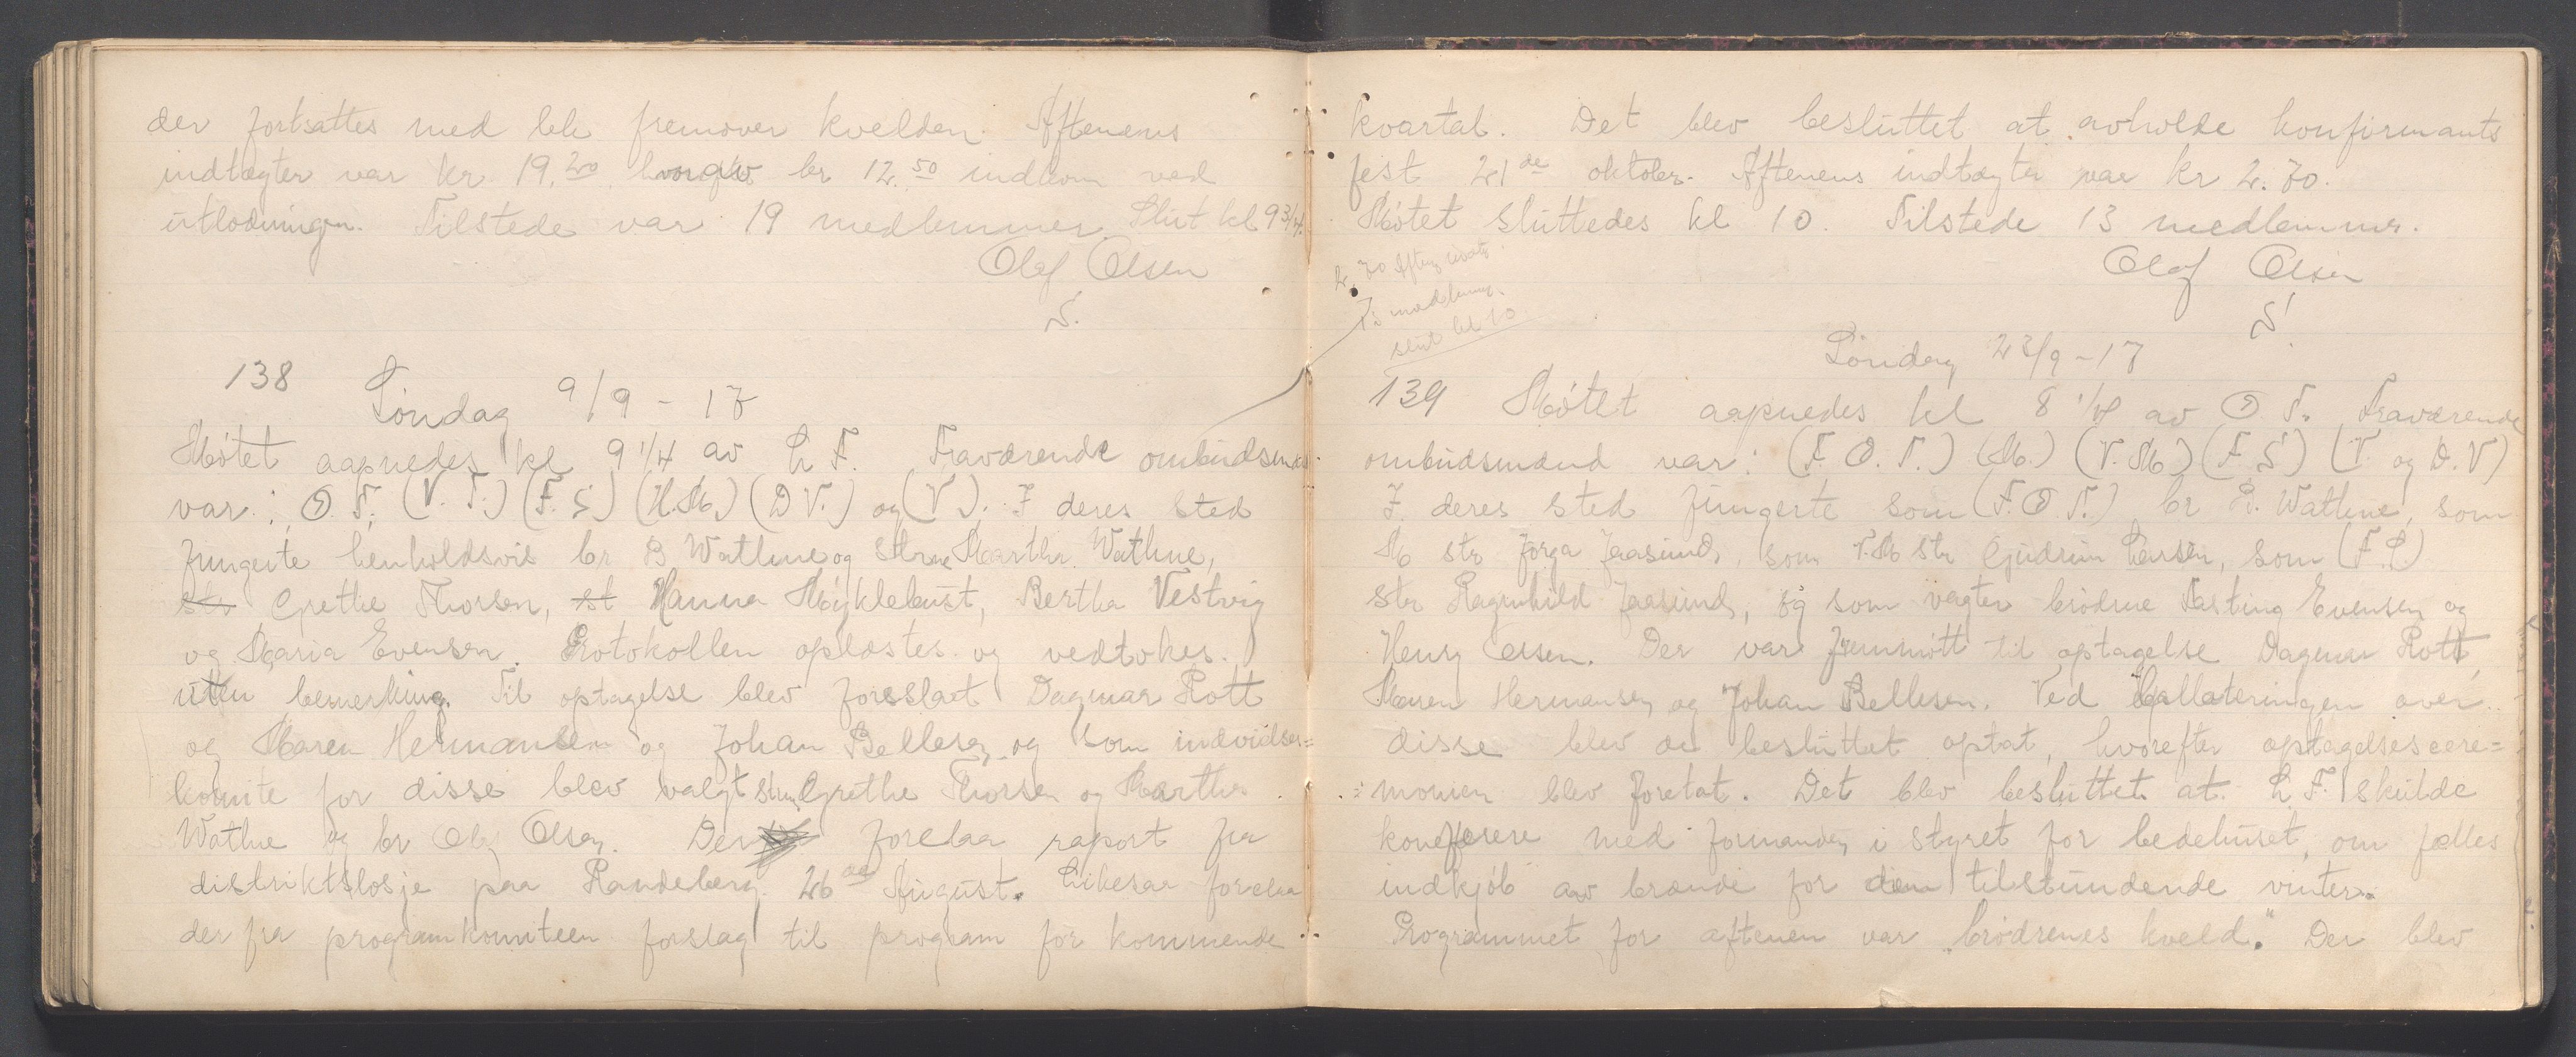 der fortsattes med lek fremover kvelden. Aftenens
indtægter var kr 19.20 hvorav kr 12.50 indkom ved
utlodningen. Tilstede var 19 medlemmer. Slut kl 9 3/4.
Olaf Olsen
S.
138 Søndag 9/9 - 17
Møtet aapnedes kl 9 1/4 av L. F. Fraværende ombudsmænd
var: O. T. (V. T.) (F. S) (V. M.) (D V.) og (V). I deres sted
fungerte henholdsvis br B Wathne og Strne Martha Wathne,
str Grethe Thorsen, st Hanna Myklebust, Bertha Vestvig
og Maria Evensen. Protokollen oplæstes og vedtokes
uten bemerkning. Til optagelse blev foreslaat Dagmar Rott
og Maren Hermansen og Johan Bellesen og som indvielses=
komite for disse blev valgt strne Grethe Thorsen og Martha
Wathne og br Olaf Olsen. Der forelaa raport fra
distriktslosje paa Randeberg 26de August. Likesaa forelaa
der fra programkomiteen forslag til program for kommende
kvartal. Det blev besluttet at avholde konfirmants
fest 21de oktober. Aftenens indtægter var kr 2.70.
Møtet sluttedes kl 10. Tilstede 13 medlemmer.
Olaf Olsen
S.
2,70 Aftens
13 medlemmer
slut kl 10
Søndag 23/9 - 17
139 Møtet aapnedes kl 8 1/4 av O. T. Fraværende
ombudsmænd var: (F. O. T.) (M.) (V. M) (F S) (V. og D. V)
I deres sted fungerte som (F. O. T.) br B. Wathne, som
M str Jorga Jaasund, som V. M str Gudrun Larsen, som (F. S.)
str Ragnhild Jaasund, og som vagter brødrne Tasting Evensen og
Henry Olsen. Der var fremmøtt til optagelse Dagmar Rott,
Maren Hermansen og Johan Bellesen. Ved ballateringen over
disse blev de besluttet optat, hvorefter optagelsescere=
=monien blev foretat. Det blev besluttet at L. F. skulde
konferere med formanden i styret for bedehuset, om fælles
indkjøb av brænde for den tilstundende vinter.
Programmet for aftenen var "brødrenes kveld." Der blev